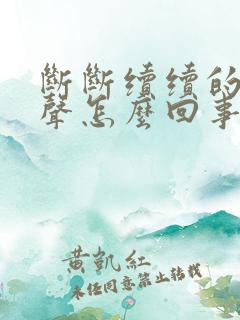 斷斷續續的
聲怎麼回事
黃凱紅
未經同意禁止轉載